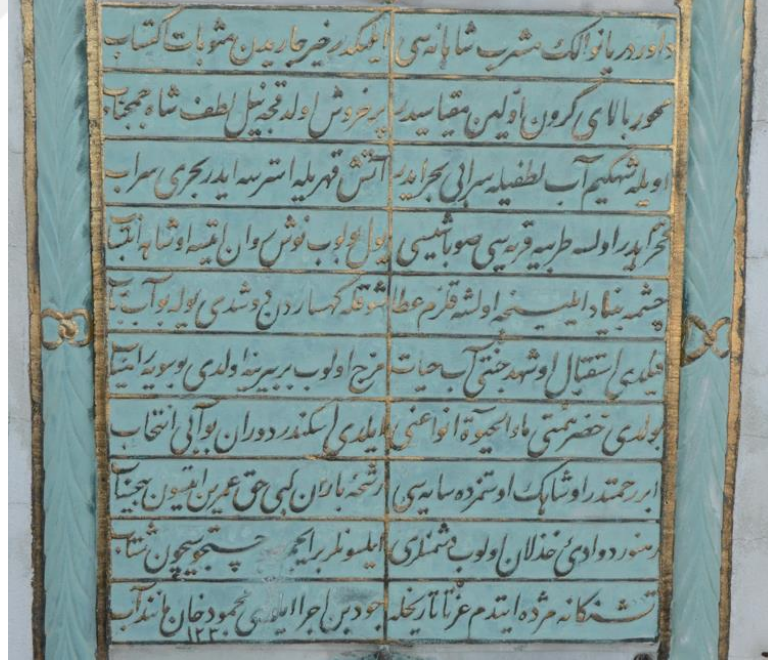 داور دریا نوالک مشرب شاهانه سی ایلمکدر خیر جاریدن مثوبات اکتساب
محور بالای کردون اولین مقیاسیدر پرخروش اولدقجه نیل لطف شاه جمجناب
اویله شهکیم آب لطفیله سرابی بحر ایدر آتش قهریله استرسه ایدر بحری سراب
بحر ایدر اولسه قریه سی صوباشیسی یول بولوب نوش روان ایتسه او شاهه انتساب
چشمه بنیاد اولشه قلزم عطا شوقله کهساردن دوشدی یوله بو آب ناب
قیلدی استقبال جنتی آب حیات مزج اولوب بربیرینه اولدی
بولدی خضر همتی ماء الحیوة انواعنی ایلدی اسکندر دوران بو آبی انتخاب
ابر رحمتدر او شاهک اوستمزده سایه سی رشحه باران کبی حق عمرین ایتسون بیحساب
رهنورد وادئ خذلان اولوب دشمنلری ایلسونلر بر ایچم جستجوسیچون شتاب
تشنکانه مژده ایتدم عزتا تاریخله جودین اجرا ایلدی محمود خان مانند آب
۱۲۳۰